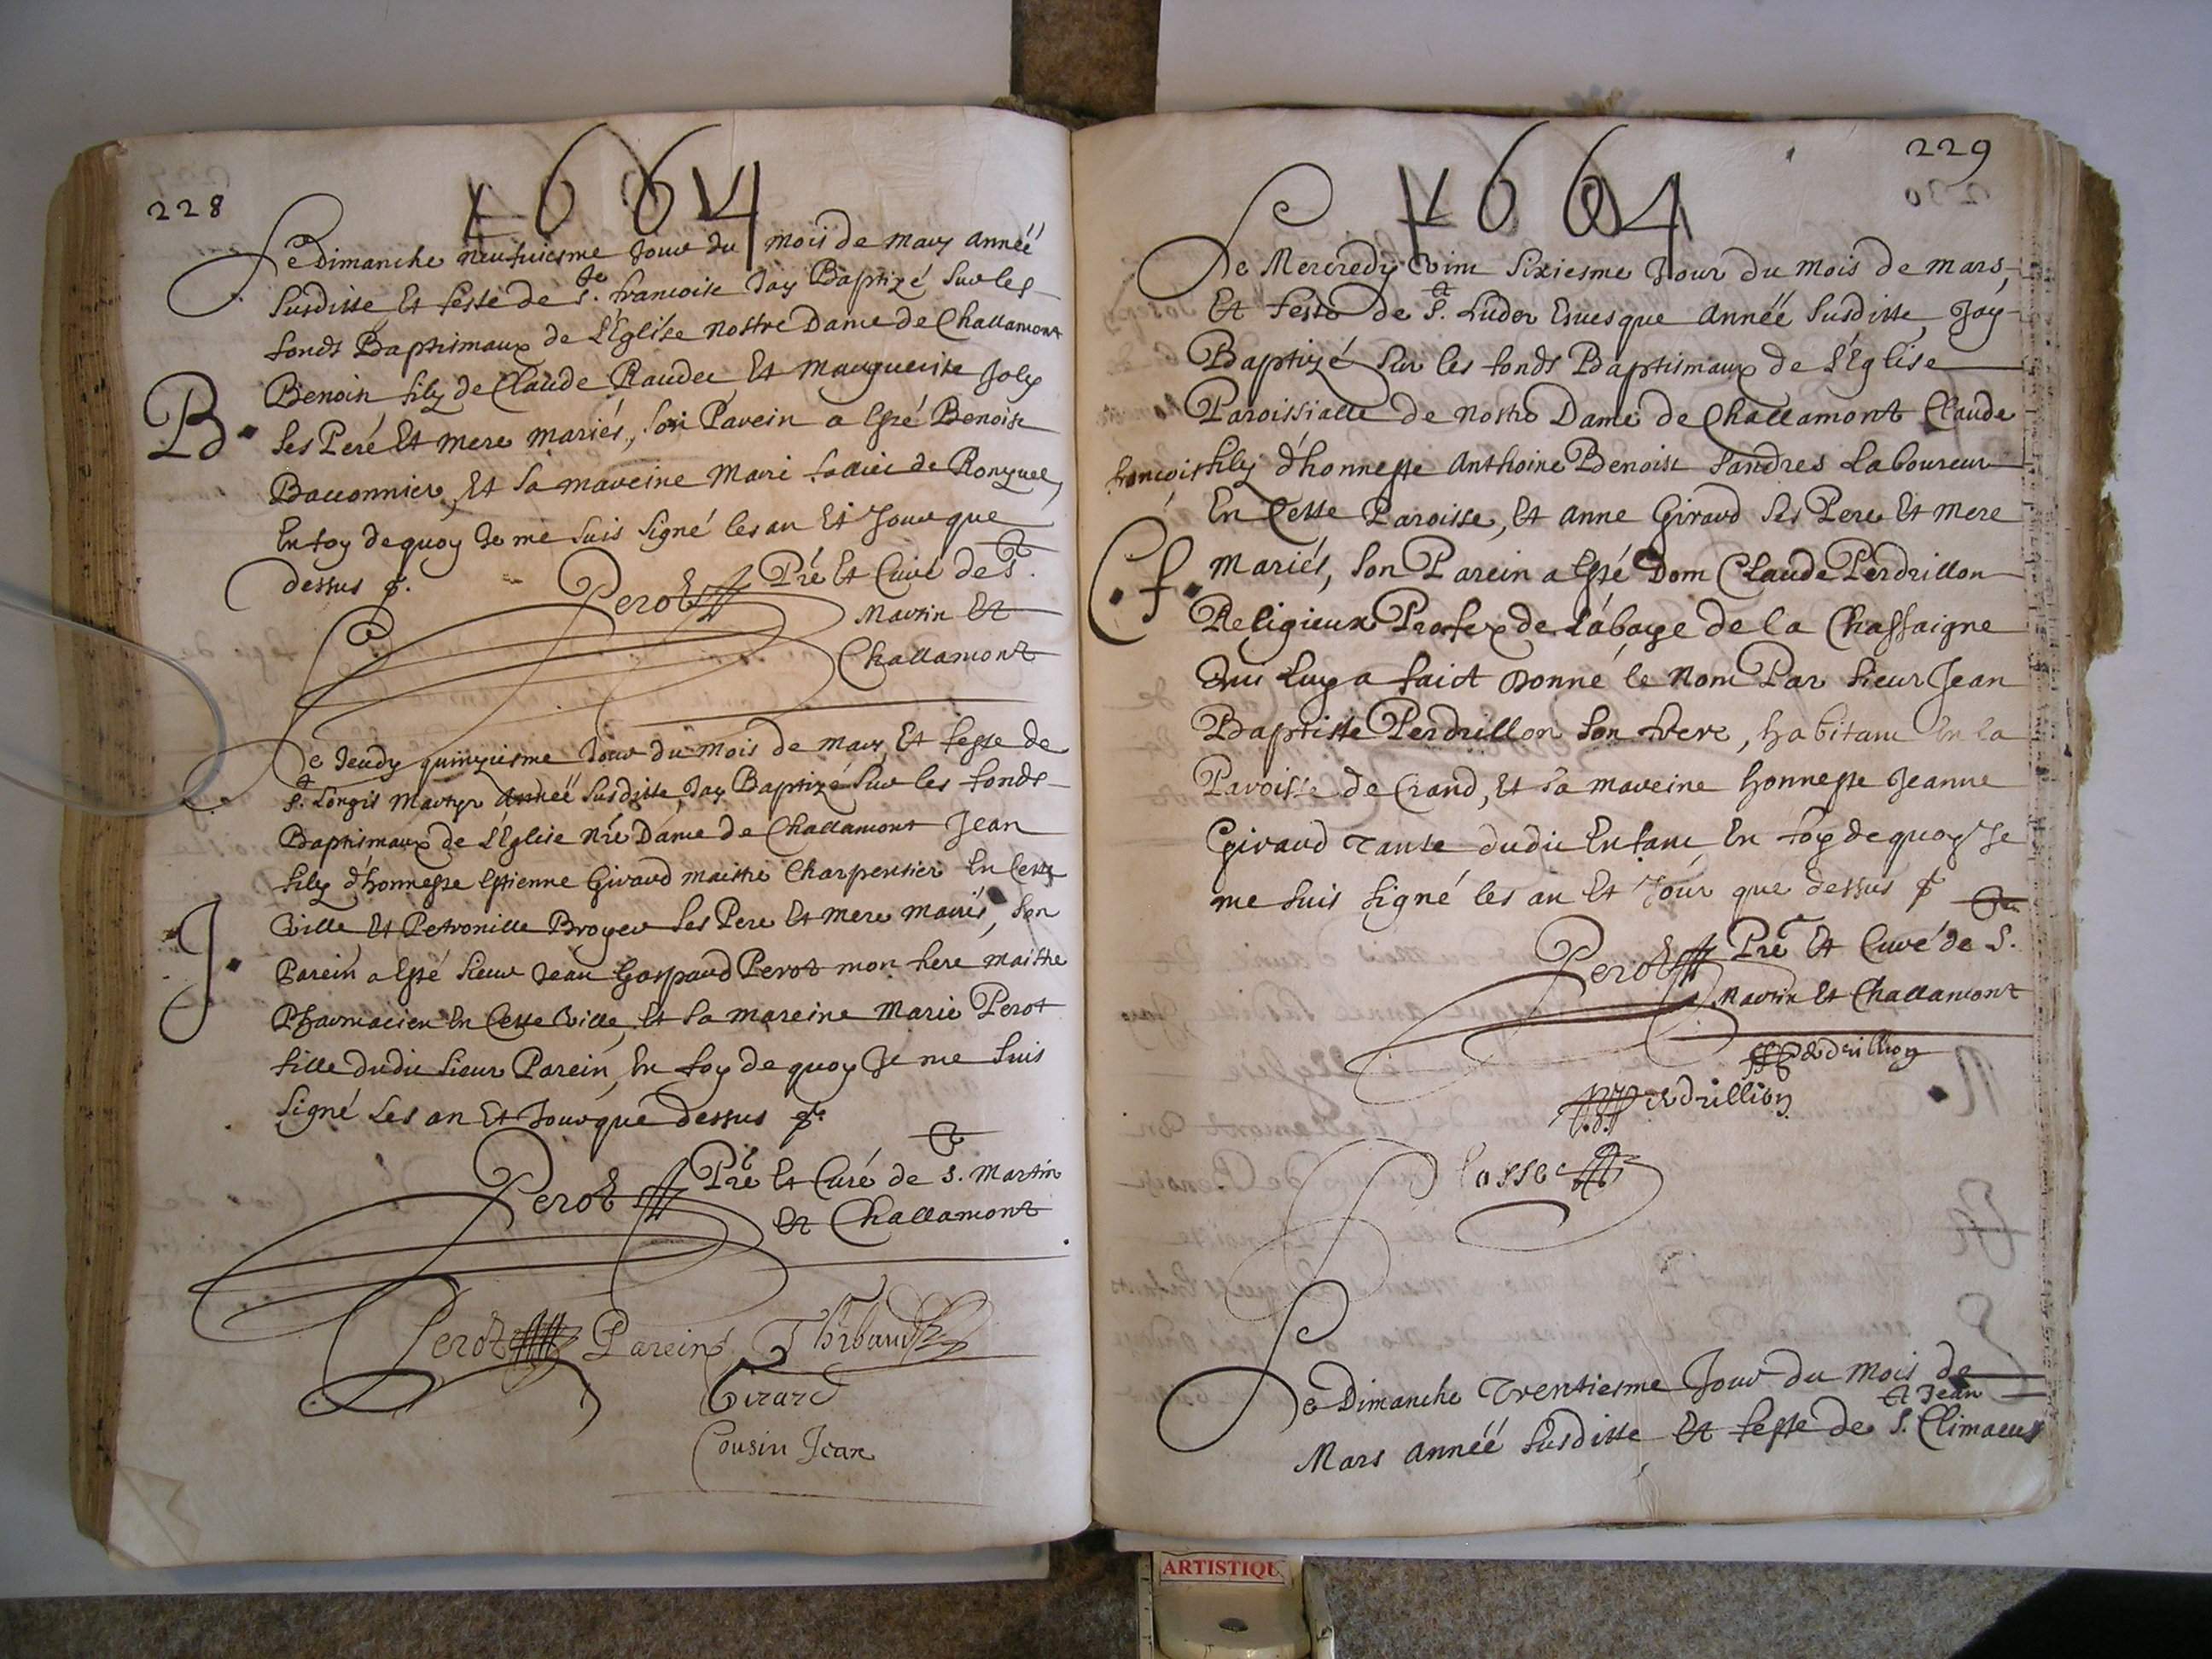 228
1664
Le Dimanche neufuiesme Jour du mois de Mars Anneé
susditte Et feste de Ste. francoise Jay Baptizé sur les
fonds Baptismaux de L'Église Nostre Dame de Challamont
Benoist filz de Claude Raudet Et Marguerite Joly
ses Peré Et Mere mariés, son Parein a esté Benoist
Et sa mareine Marie de Ronzuel,
En foy de quoy Je me suis signé les an Et Jour que
dessus
B.
Perot Pré Et Curé de St.
Martin Et
Challamont
Le Jeudy quinziesme Jour du Mois de Mars, Et feste de
St. Longis Martyr Anneë susditte, Jay Baptizé sur les fonds
Baptismaux de L'Eglise Nre Dame de Challamont Jean
filz d'honneste Estienne Giraud maistre Charpentier En Cette
Ville, Et Petronille Broyer ses Pere Et Mere mariés, son
J.
Parein a esté sieur Jean Gaspard Perot mon frere maistre
Pharmacien En Cette Ville, Et sa mareine Marie Perot
fille dudit sieur Parein, En foy de quoy Je me suis
signé Les an Et Jour que dessus
Perot Pré Et Curé de St. Martin
Et Challamont
Perot Parein Thibaud
Girard
Cousin Jean
229
1664
Le Mercredy Vint Sixiesme Jour du Mois de Mars,
Et feste de St. Luder Euesque Anneë susditte, Jay
Baptizé sur les fonds Baptismaux de L'Eglise
Paroissialle de Nostre Dame de Challamont Claude
francois filz d'honneste Anthoine Benoist Landres Laboureur
En Cette Paroisse, Et Anne Giraud ses Pere Et Mere
C. f.
Mariés, son Parein a esté Dom Claude Perdrillon
Religieux Profex de L'abaye de la Chassaigne
Qui luy a faict Donné le Nom Par sieur Jean
Baptiste Perdrillon son frere, habitant En la
Paroisse de Crand, Et sa mareine honneste Jeanne
Giraud Tante dudit Enfant, En foy de quoy Je
me suis signé les an Et Jour que dessus
Perot Pré Et Curé de St.
Martin Et Challamont
Perdrillion
Perdrillion
Le Dimanche Trentiesme Jour du Mois de
Mars anneé susditte Et feste de St. Jean Climacus
ARTISTIQU